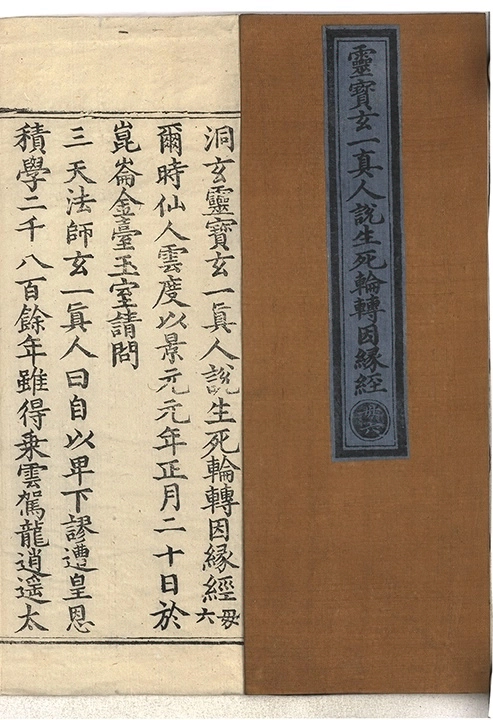 靈寶玄一真人說生死輪轉因緣經
毋六
洞玄靈寶玄一眞人說生死輪轉因緣經 毋六
爾時仙人雲度以景元元年正月二十日於
崑崙金臺玉室請問
三天法師玄一眞人曰自以卑下謬遭皇恩
積學二千八百餘年雖得乗雲駕龍逍遥太